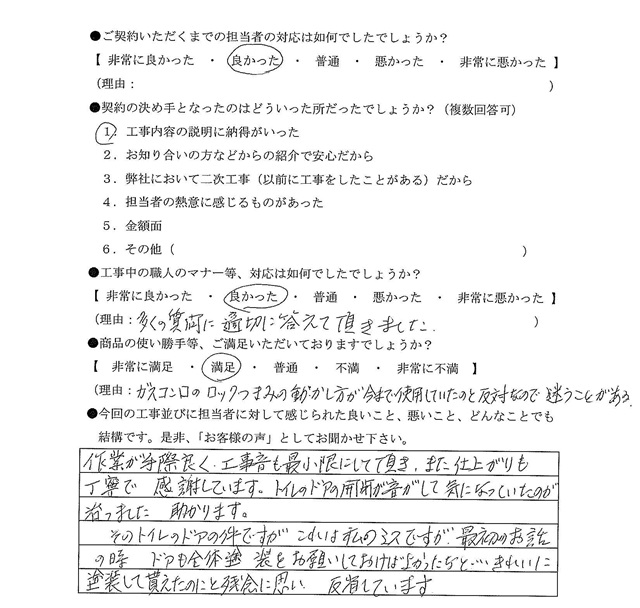 ●ご契約いただくまでの担当者の対応は如何でしたでしょうか？
【 非常に良かった ・ 良かった ・ 普通 ・ 悪かった ・ 非常に悪かった 】
（理由： ）
●契約の決め手となったのはどういった所だったでしょうか？（複数回答可）
1．工事内容の説明に納得がいった
2．お知り合いの方などからの紹介で安心だから
3．弊社において二次工事（以前に工事をしたことがある）だから
4．担当者の熱意に感じるものがあった
5．金額面
6．その他（ ）
●工事中の職人のマナー等、対応は如何でしたでしょうか？
【 非常に良かった ・ 良かった ・ 普通 ・ 悪かった ・ 非常に悪かった 】
（理由：多くの質問に適切に答えて頂きました. ）
●商品の使い勝手等、ご満足いただいておりますでしょうか？
【 非常に満足 ・ 満足 ・ 普通 ・ 不満 ・ 非常に不満 】
（理由：ガスコンロのロックつまみの動かし方が今まで使用していたのと反対なので迷うことがある
●今回の工事並びに担当者に対して感じられた良いこと、悪いこと、どんなことでも
結構です。是非、「お客様の声」としてお聞かせ下さい。
作業が手際良く、工事音も最小限にして頂き、また仕上がりも
丁寧で 感謝しています。トイレのドアの開閉が音がして気になっていたのが
治りました 助かります。
そのトイレのドアの件ですが これは私のミスですが 最初のお話
の時 ドアも全体塗装をお願いしておけばよかったなぁと…きれいに
塗装して貰えたのにと残念に思い 反省しています